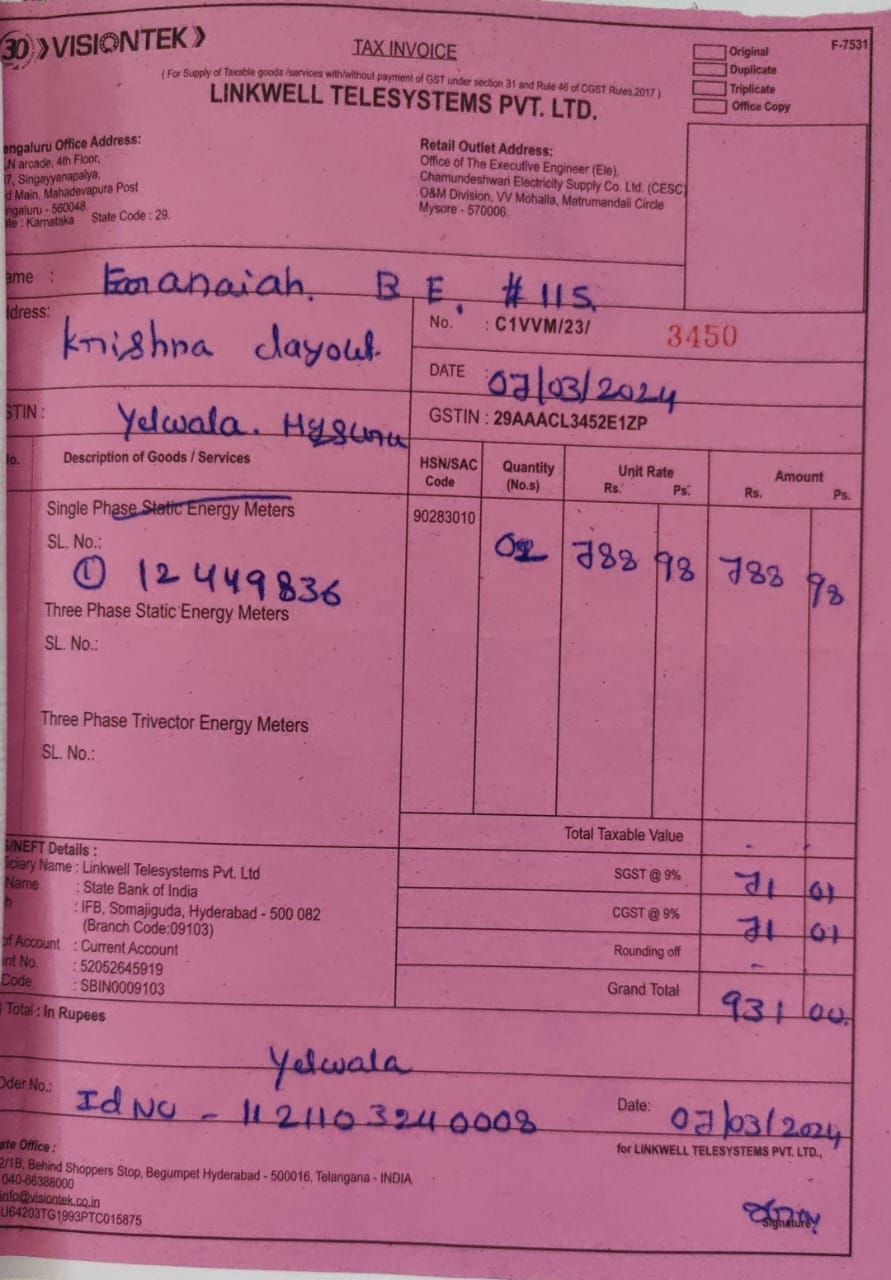 30 VISIONTEK
TAX INVOICE
Original
F-7531
Duplicate
Triplicate
Office Copy
( For Supply of Taxable goods /services with/without payment of GST under section 31 and Rule 46 of CGST Rules.2017 )
LINKWELL TELESYSTEMS PVT. LTD.
engaluru Office Address:
N arcade, 4th Floor,
7, Singayyanapalya,
d Main, Mahadevapura Post
ngaluru - 560048.
te : Karnataka State Code : 29.
Retail Outlet Address:
Office of The Executive Engineer (Ele),
Chamundeshwari Electricity Supply Co. Ltd. (CESC)
O&M Division, VV Mohalla, Matrumandali Circle
Mysore - 570006.
ame : B E. # 115.
ddress: Krishna Layout.
No. : C1VVM/23/ 3450
DATE : 07/03/2024
STIN : Yelwala. Mysuru
GSTIN : 29AAACL3452E1ZP
o. Description of Goods / Services HSN/SAC Code Quantity (No.s) Unit Rate Rs. Ps. Amount Rs. Ps.
Single Phase Static Energy Meters 90283010 788 98 788 98
SL. No.:
① 12449836
Three Phase Static Energy Meters
SL. No.:
Three Phase Trivector Energy Meters
SL. No.:
Total Taxable Value -
SGST @ 9% 71 01
CGST @ 9% 71 01
Rounding off -
Grand Total 931 00.
S/NEFT Details :
iciary Name : Linkwell Telesystems Pvt. Ltd
Name : State Bank of India
h : IFB, Somajiguda, Hyderabad - 500 082
(Branch Code:09103)
of Account : Current Account
nt No. : 52052645919
Code : SBIN0009103
Total : In Rupees
Yelwala
Oder No.: Id No - 1121103240008
Date: 07/03/2024
for LINKWELL TELESYSTEMS PVT. LTD.,
ate Office :
2/1B, Behind Shoppers Stop, Begumpet Hyderabad - 500016, Telangana - INDIA
040-66388000
info@visiontek.co.in
U64203TG1993PTC015875
Signature